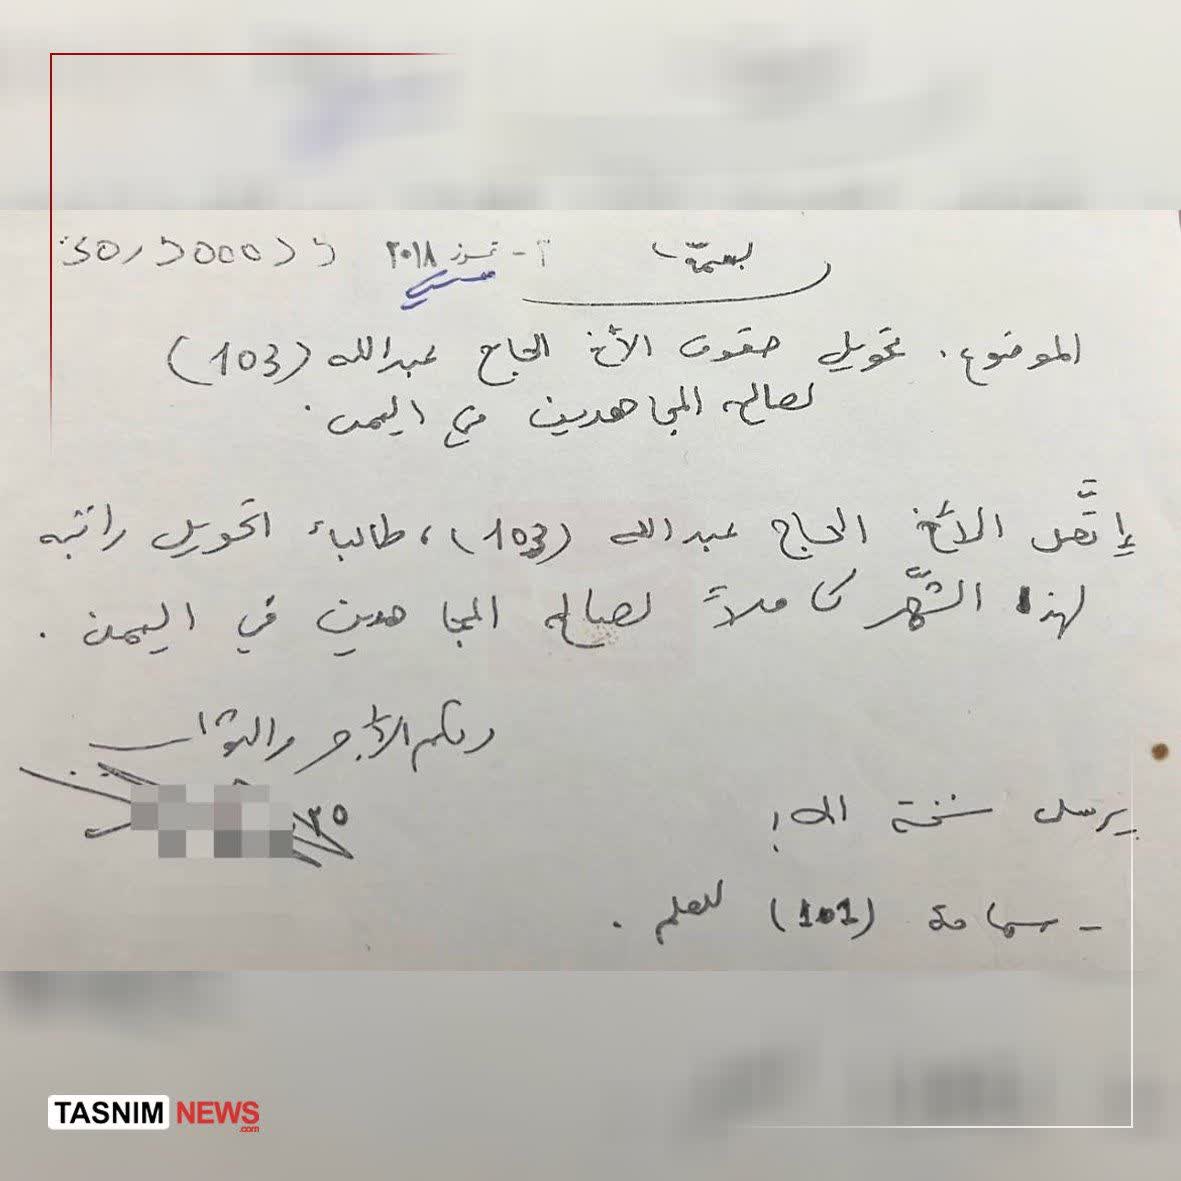 بسمه تعالى
٢ - تموز ٢٠١٨
الموضوع: تحويل حقوق الأخ الحاج عبدالله (103)
لصالح المجاهدين في اليمن.
إتّصل الأخ الحاج عبدالله (103)، طالباً تحويل راتبه
لهذا الشّهر كاملاً لصالح المجاهدين في اليمن.
ولكم الأجر والثواب
يرسل نسخة الى:
- سماحة (101) للعلم.
TASNIM NEWS
.com